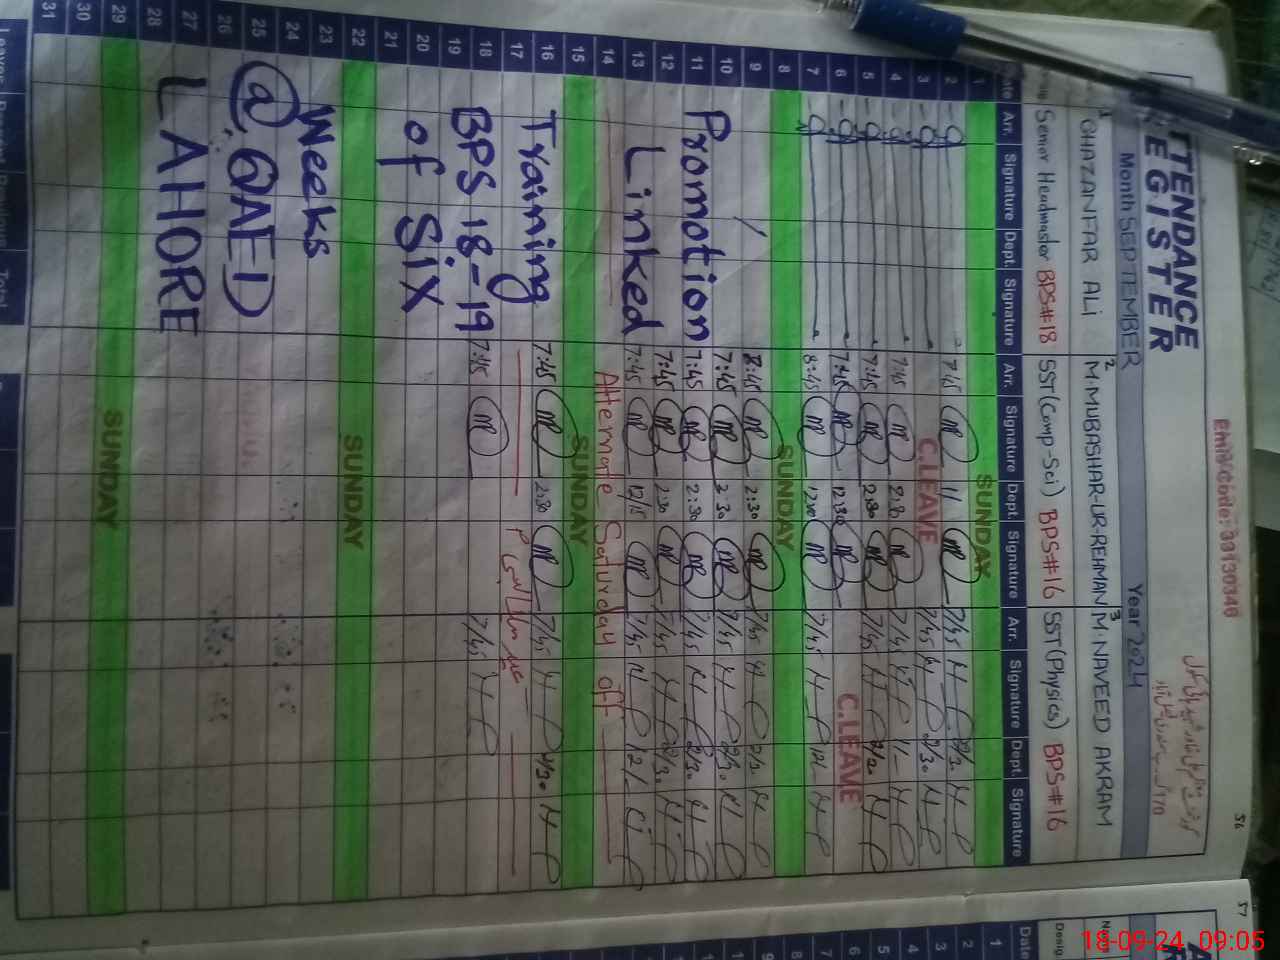 ATTENDANCE
REGISTER
EMIS Code: 33130340
Month SEPTEMBER Year 2024
56
1 GHAZANFAR ALI
2 M. MUBASHAR-UR-REHMAN
3 M. NAVEED AKRAM
Senior Headmaster BPS#18
SST(Comp-Sci) BPS#16
SST(Physics) BPS#16
Arr. Signature Dept. Signature Arr. Signature Dept. Signature Arr. Signature Dept. Signature
1 SUNDAY
2 7:45 11 7/45 2/30
3 C.LEAVE 7/45 2/30
4 7:45 7/45 11/-
5 7:45 2:30 7/45
6 7:45 12:30 C.LEAVE
7 8:45 12:30 7/45
8 SUNDAY
9 8:45 2:30 7/45 2/30
10 7:45 2:30 7/45 2/30
11 7:45 2:30 7/45 2/30
12 7:45 2:30 7/45 2/30
13 7:45 12/15 7/45 12/-
14 Alternate Saturday off
15 SUNDAY
16 7:45 2:30 7/45 2/30
17
18 7:45 7/45
19
20
21
22 SUNDAY
23
24
25
26
27
28
29 SUNDAY
30
31
Promotion
Linked
Training
BPS 18-19
of Six
Weeks
@ QAED
LAHORE
Leaves Present Previous Total
57
Date 1 2 3 4 5 6 7 8
Desig
18-09-24 09:05